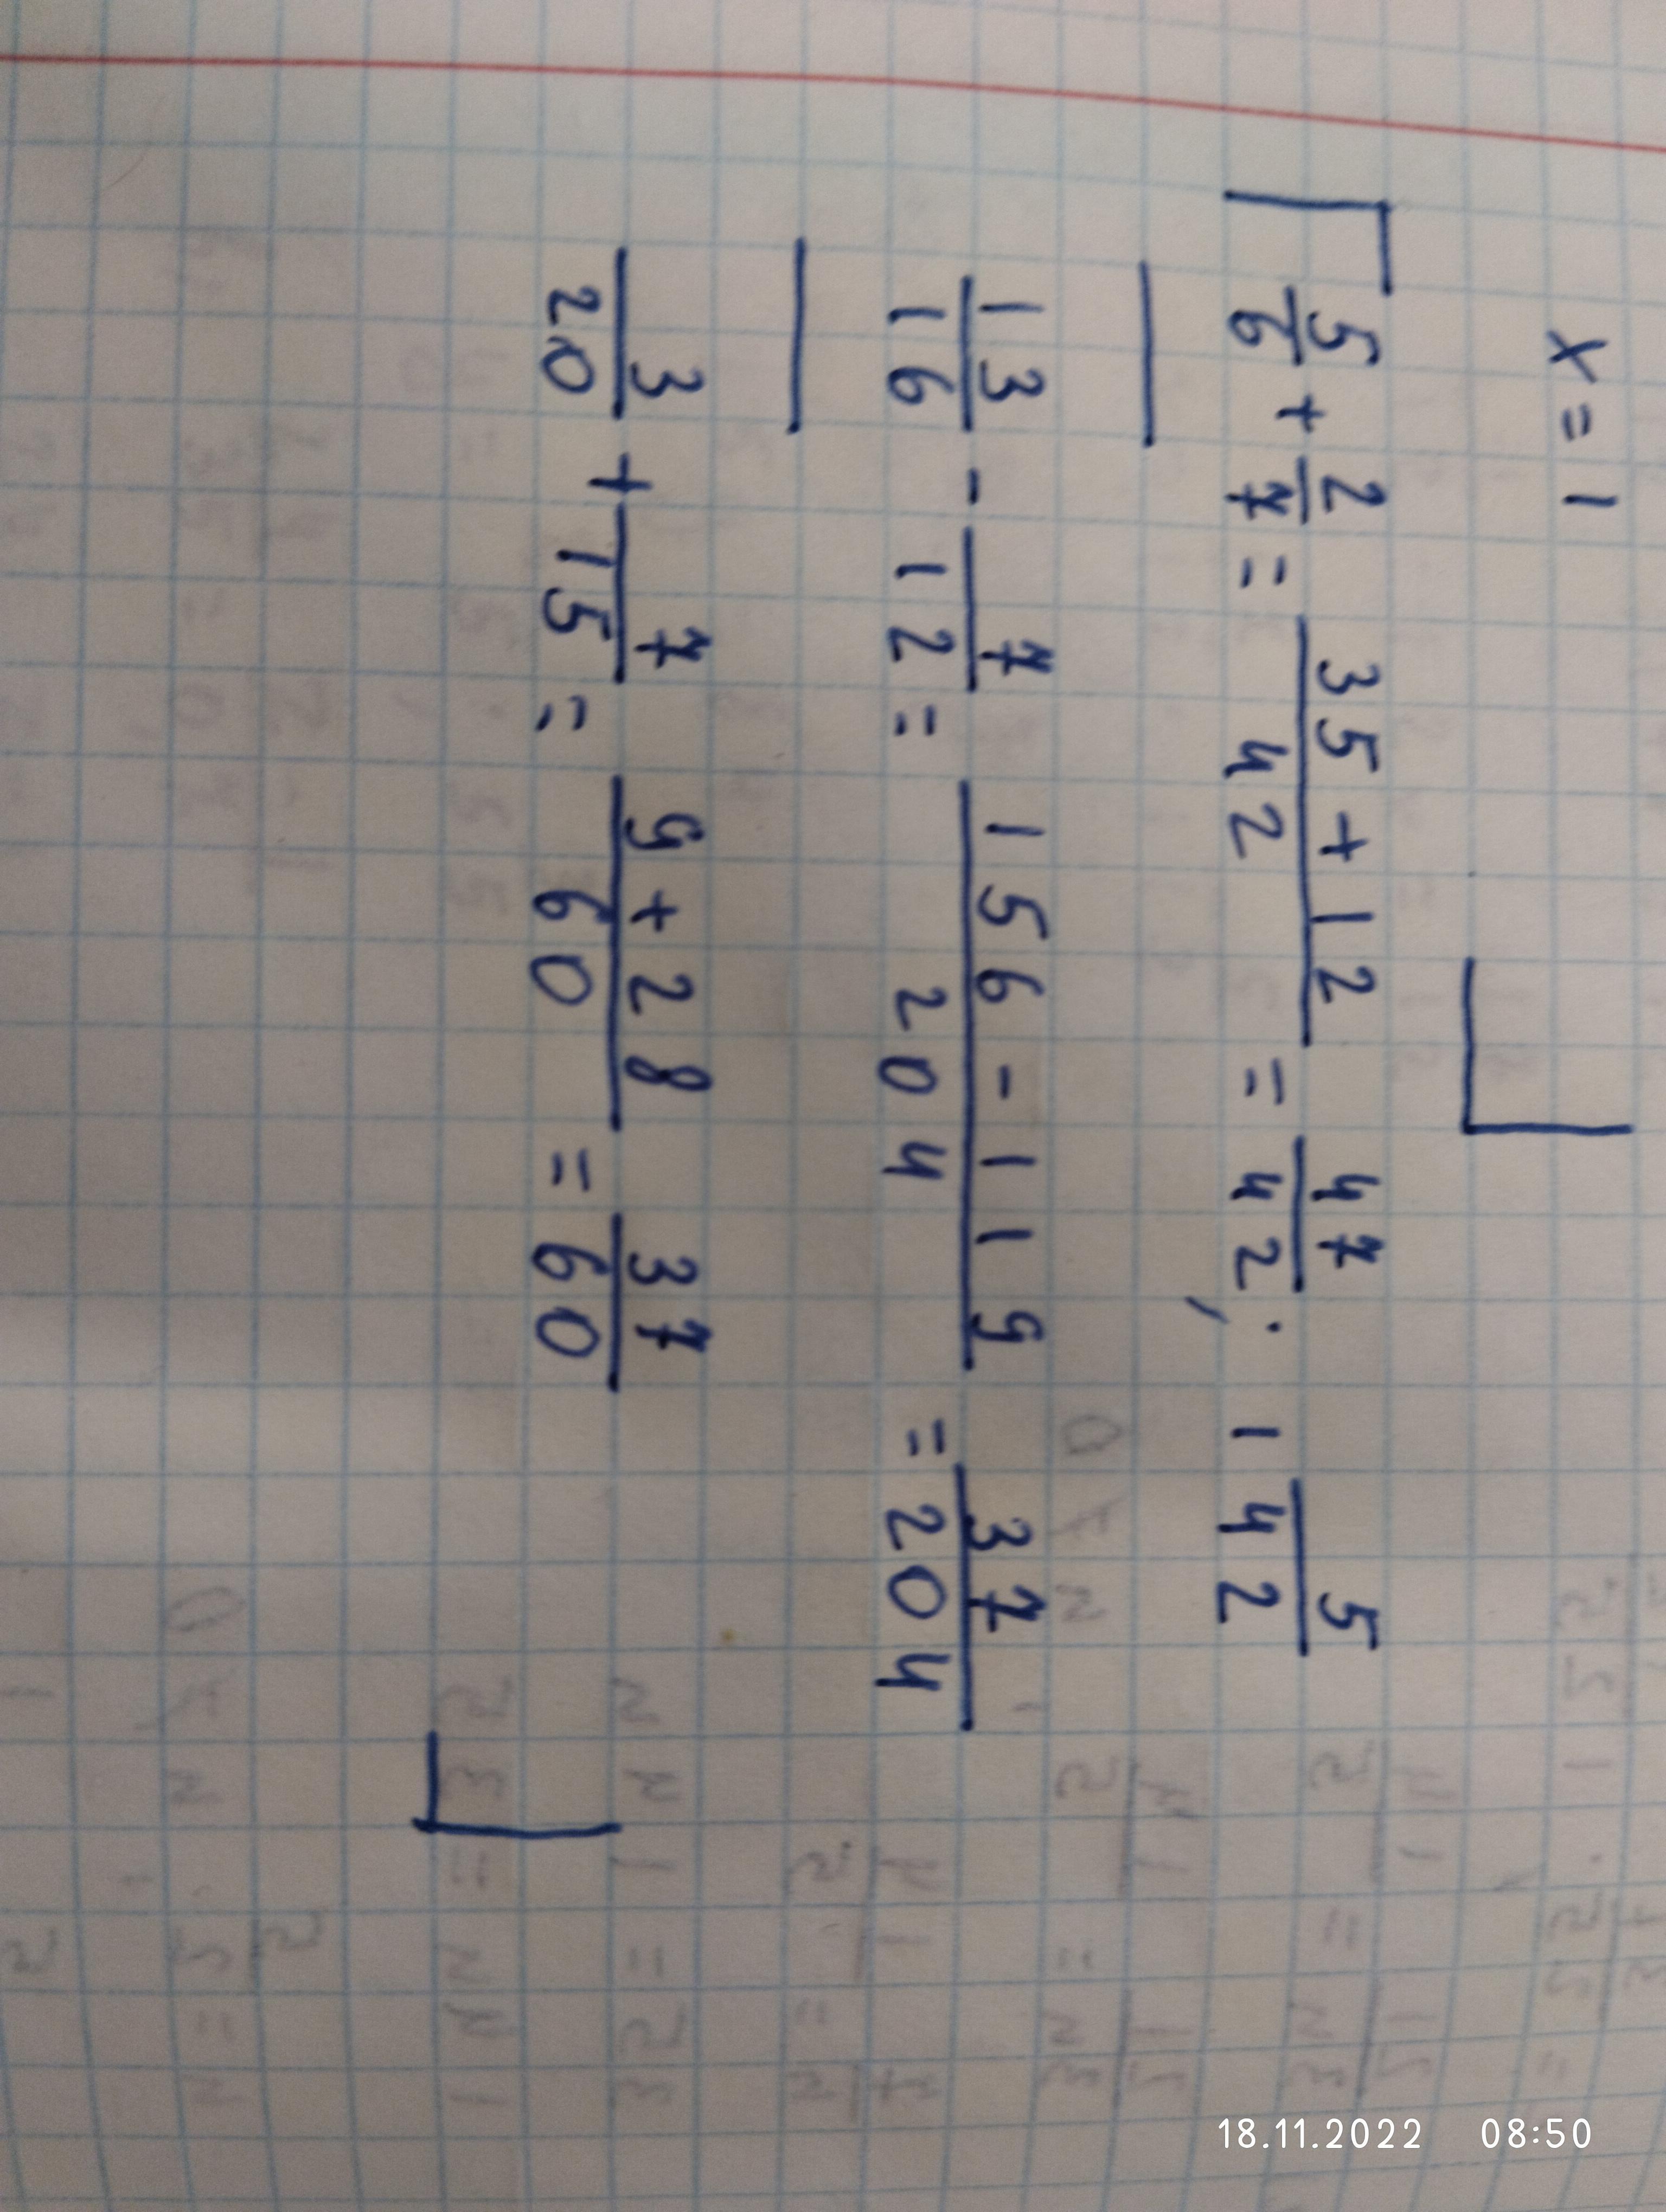 x = 1
5/6 + 2/7 = 35+12/42 = 47/42; 1 5/42
13/16 - 7/12 = 156-119/204 = 37/204
3/20 + 7/15 = 9+28/60 = 37/60
18.11.2022 08:50